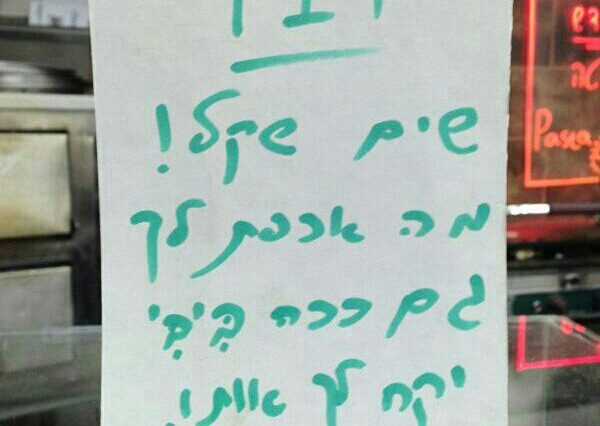 שים שקל!
מה אכפת לך
גם ככה בִּיבִּי
יקח לך אותו